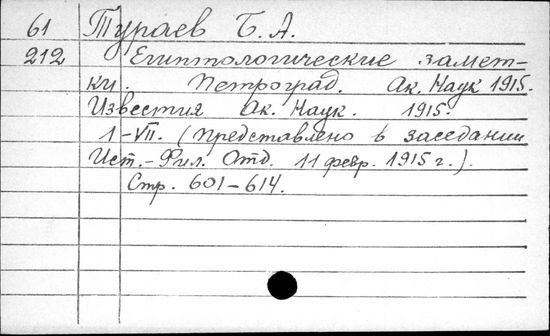 61 Тураев Б. А.
212 Египтологические замет-
ки. Петроград. Ак. Наук 1915.
Известия Ак. Наук. 1915.
I-VII. (представлено в заседании
Ист.-Фил. Отд. 11 февр. 1915 г.).
Стр. 601-614.